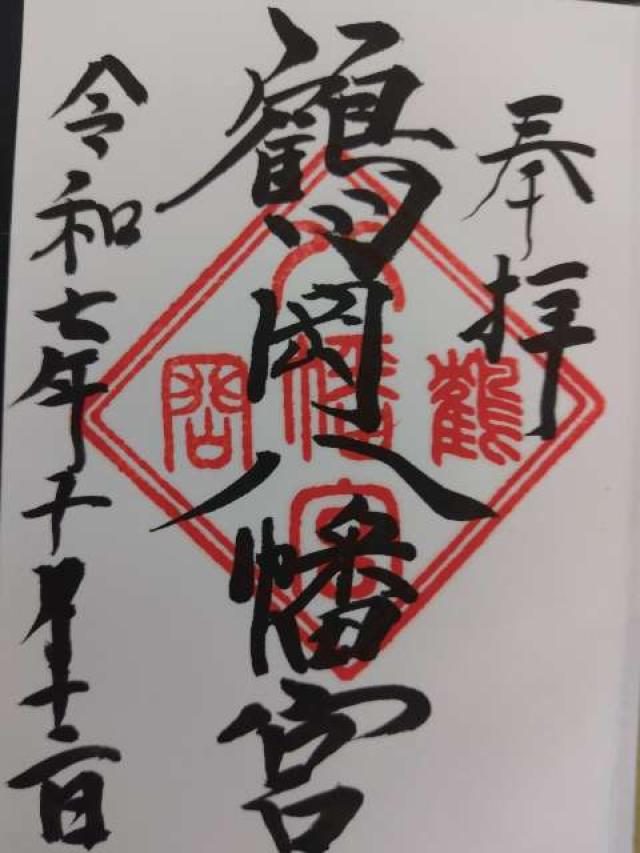 奉拝
鶴岡八幡宮
令和七年十月十二日
鶴
八幡宮
岡